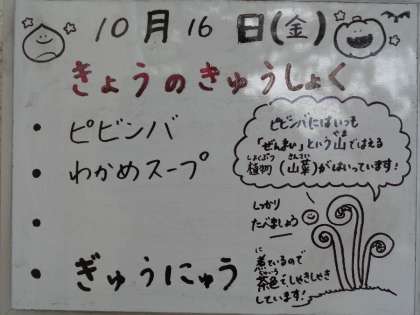 10月16日(金)
きょうのきゅうしょく
• ピビンバ
• わかめスープ
•
• ぎゅうにゅう
ピビンバにはいつも
「ぜんまい」という山ではえる
植物(山菜)がはいっています!
しっかり
たべましょう
煮ているので
茶色で、しゃきしゃき
しています!